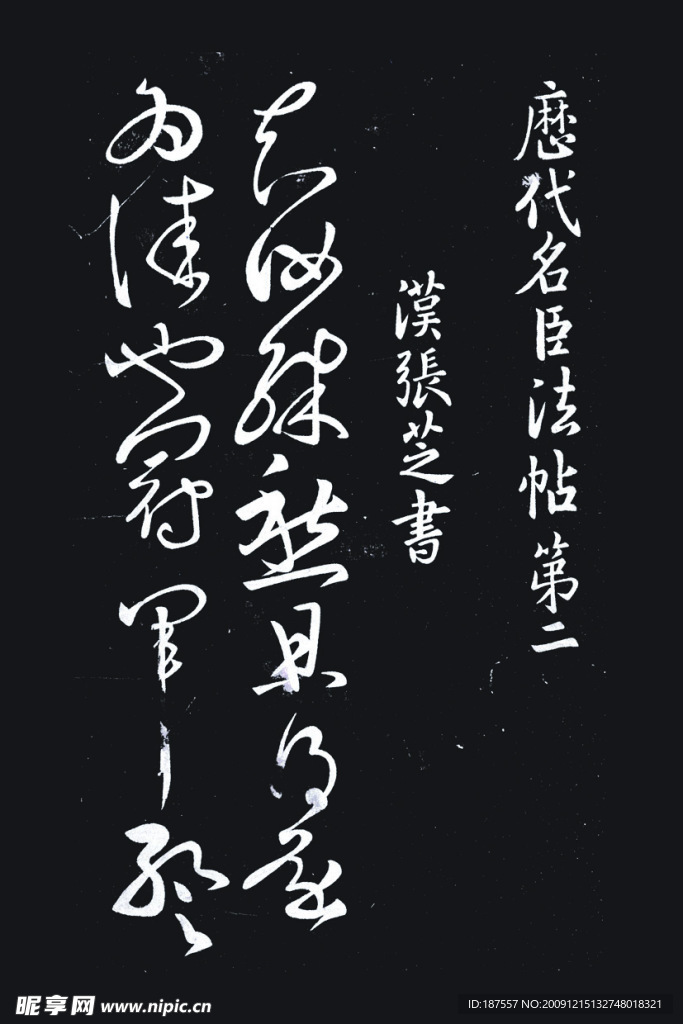 歷代名臣法帖第二
漢張芝書
知汝殊愁且得還
為佳也冠軍暫
昵享网 www.nipic.cn
ID:187557 NO:20091215132748018321